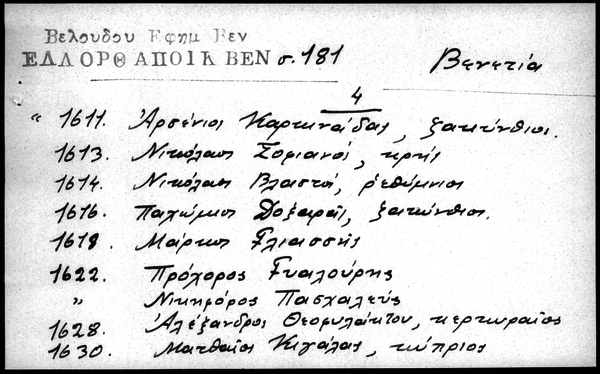 Βελουδου Εφημ Βεν
ΕΛΛΟΡΘ ΑΠΟΙΚ ΒΕΝ σ. 181 Βενετία
4
" 1611. Ἀρσένιος Καρτινάδας, ζακύνθιος.
1613. Νικόλαος Σοριανός, κρής
1614. Νικόλαος Βλαστός, ῥεθύμνιος
1616. Παχώμιος Δοξαράς, ζακύνθιος.
1618. Μάρκος Γλιασσής
1622. Πρόχορος Γυαλούρης
" Νικηφόρος Πασχαλεύς
1628. Ἀλέξανδρος Θεοφυλάκτου, κερκυραῖος
1630. Ματθαῖος Κιγάλας, κύπριος